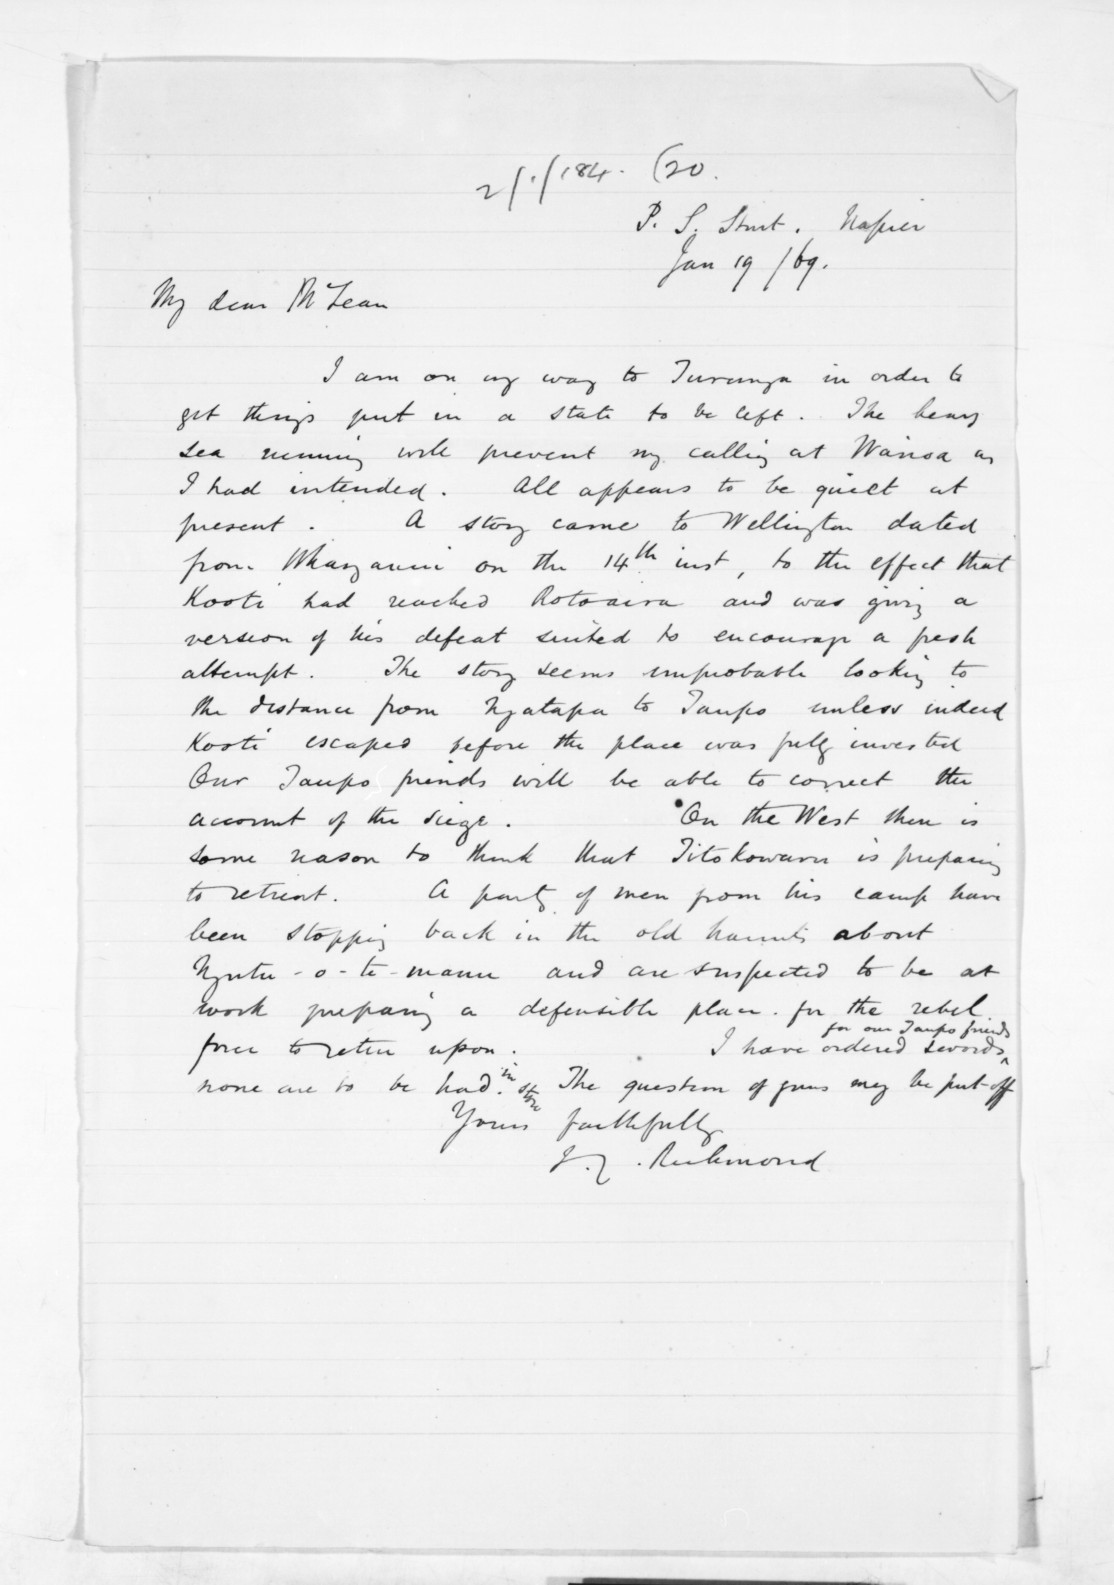 2/1/184. (20.
P. S. Sturt. Napier
Jan 19 /69.
My dear McLean
I am on my way to Turanga in order to
get things put in a state to be left. The heavy
sea running will prevent my calling at Wairoa as
I had intended. All appears to be quiet at
present. A story came to Wellington dated
from Whanganui on the 14th inst, to the effect that
Kooti had reached Rotoaira and was giving a
version of his defeat suited to encourage a fresh
attempt. The story seems improbable looking to
the distance from Ngatapa to Taupo unless indeed
Kooti escaped before the place was fully invested
Our Taupo friends will be able to correct the
account of the siege. On the West there is
some reason to think that Titokowaru is preparing
to retreat. A party of men from his camp have
been stopping back in the old haunts about
Ngutu-o-te-manu and are suspected to be at
work preparing a defensible place for the rebel
for our Taupo friends
force to retire upon. I have ordered swords ^
none are to be had in store. The question of guns may be put off
Yours faithfully
J. C. Richmond